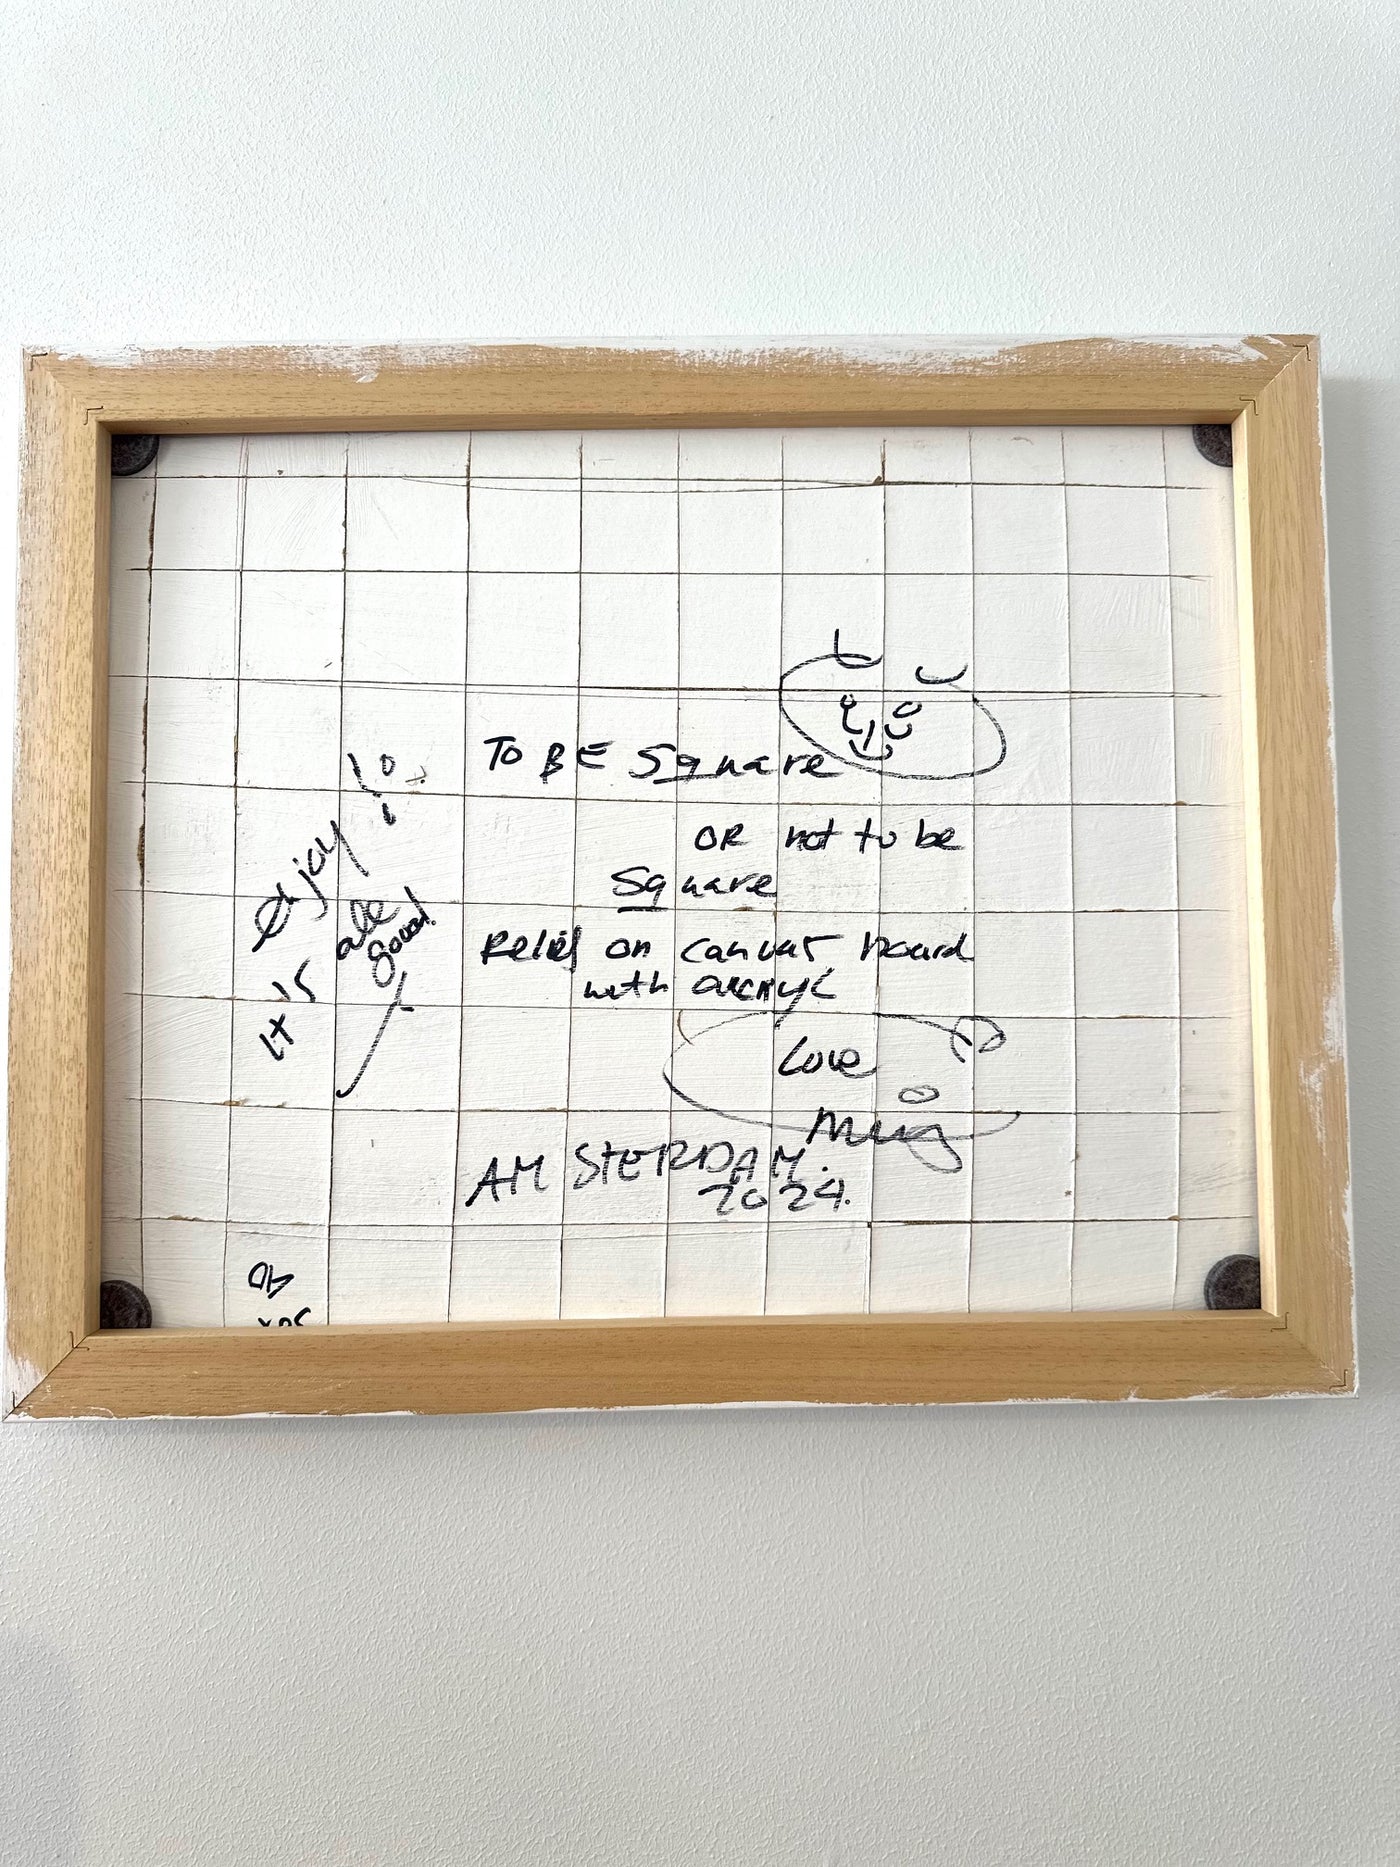 TO BE Square
OR not to be
Square
Relief on canvas board
with acrylic
Love
AMSTERDAM.
2024.
enjoy
it's all good!
oh
yes